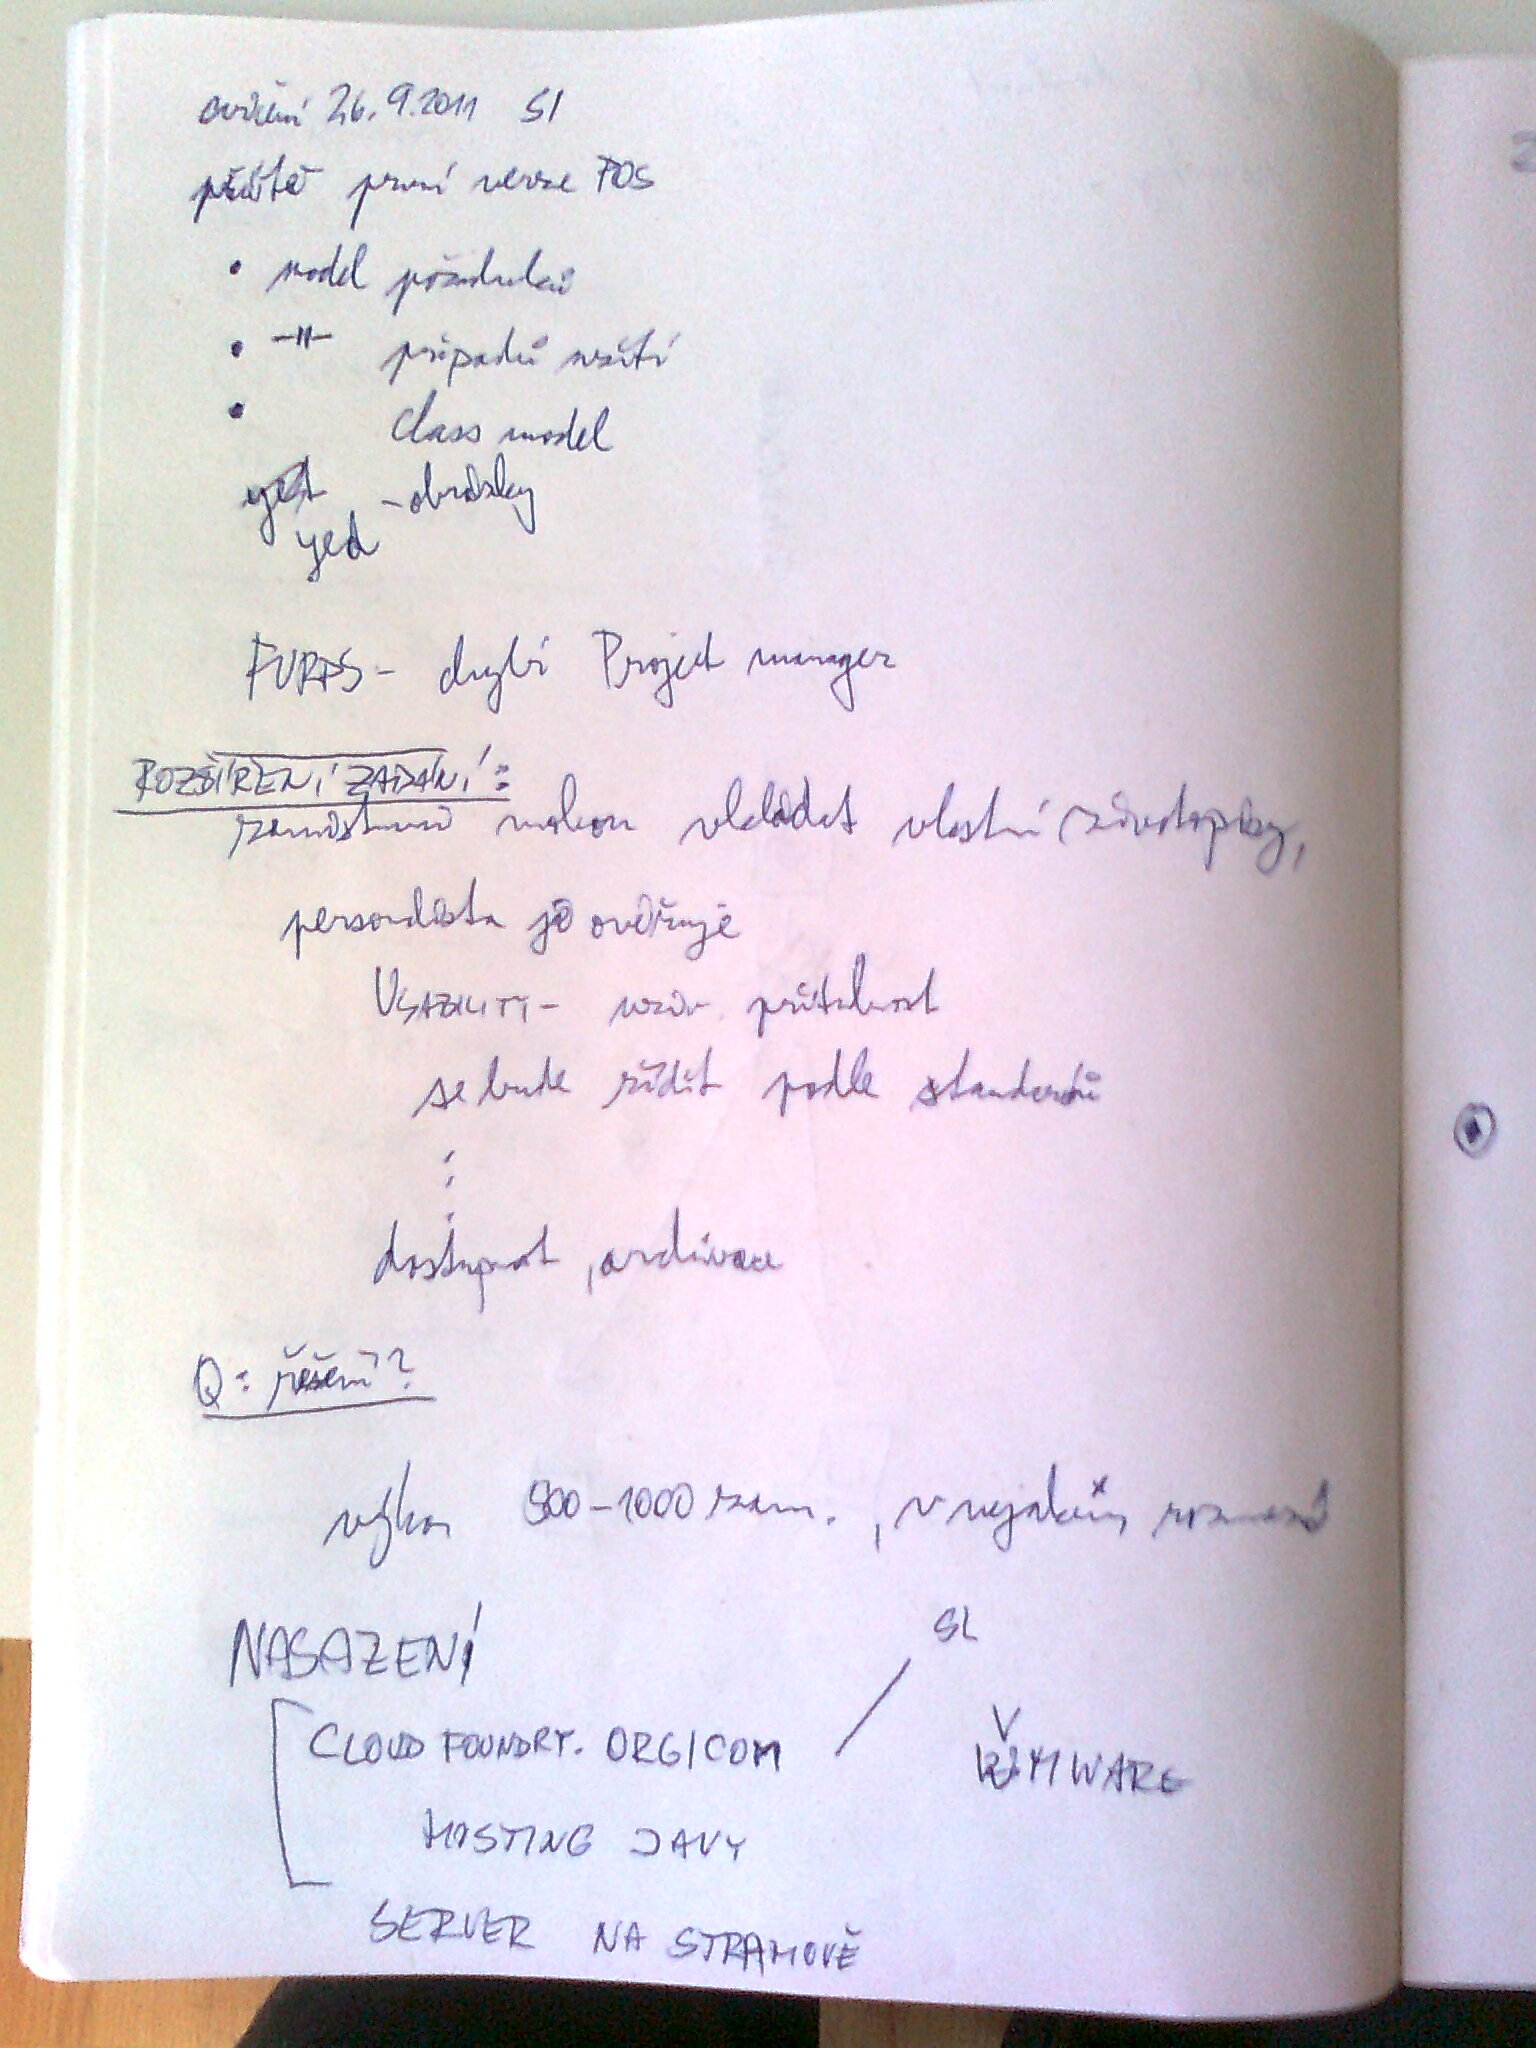 cvičení 26.9.2011 SI
příště první verze POS
• model požadavků
• -||- případů užití
• class model
yEd - obrázky
yed
FURPS - chybí Project manager
ROZŠÍŘENÍ ZADÁNÍ:
zaměstnanci mohou vkládat vlastní životopisy,
personalista je ověřuje
USABILITY - uživ. přítulnost
se bude řídit podle standardů
:
dostupnost, archivace
Q: řešení?
výkon 500-1000 zam., v nějakém rozmezí
NASAZENÍ
SL
CLOUD FOUNDRY. ORG/COM
VMWARE
HOSTING JAVY
SERVER NA STRAHOVĚ